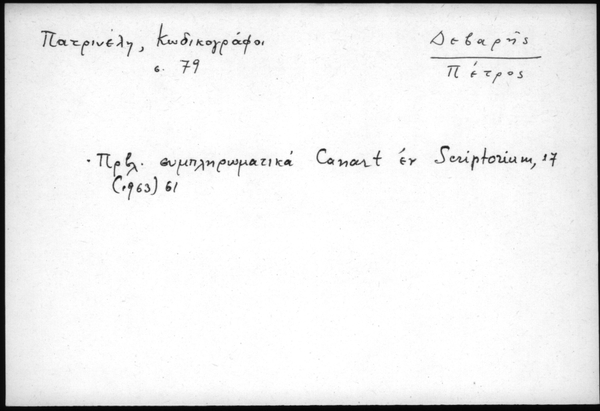 Πατρινέλη, Κωδικογράφοι
σ. 79
Δεβαρῆς
Πέτρος
· Πρβλ. συμπληρωματικά Canart ἐν Scriptorium, 17
(1963) 61